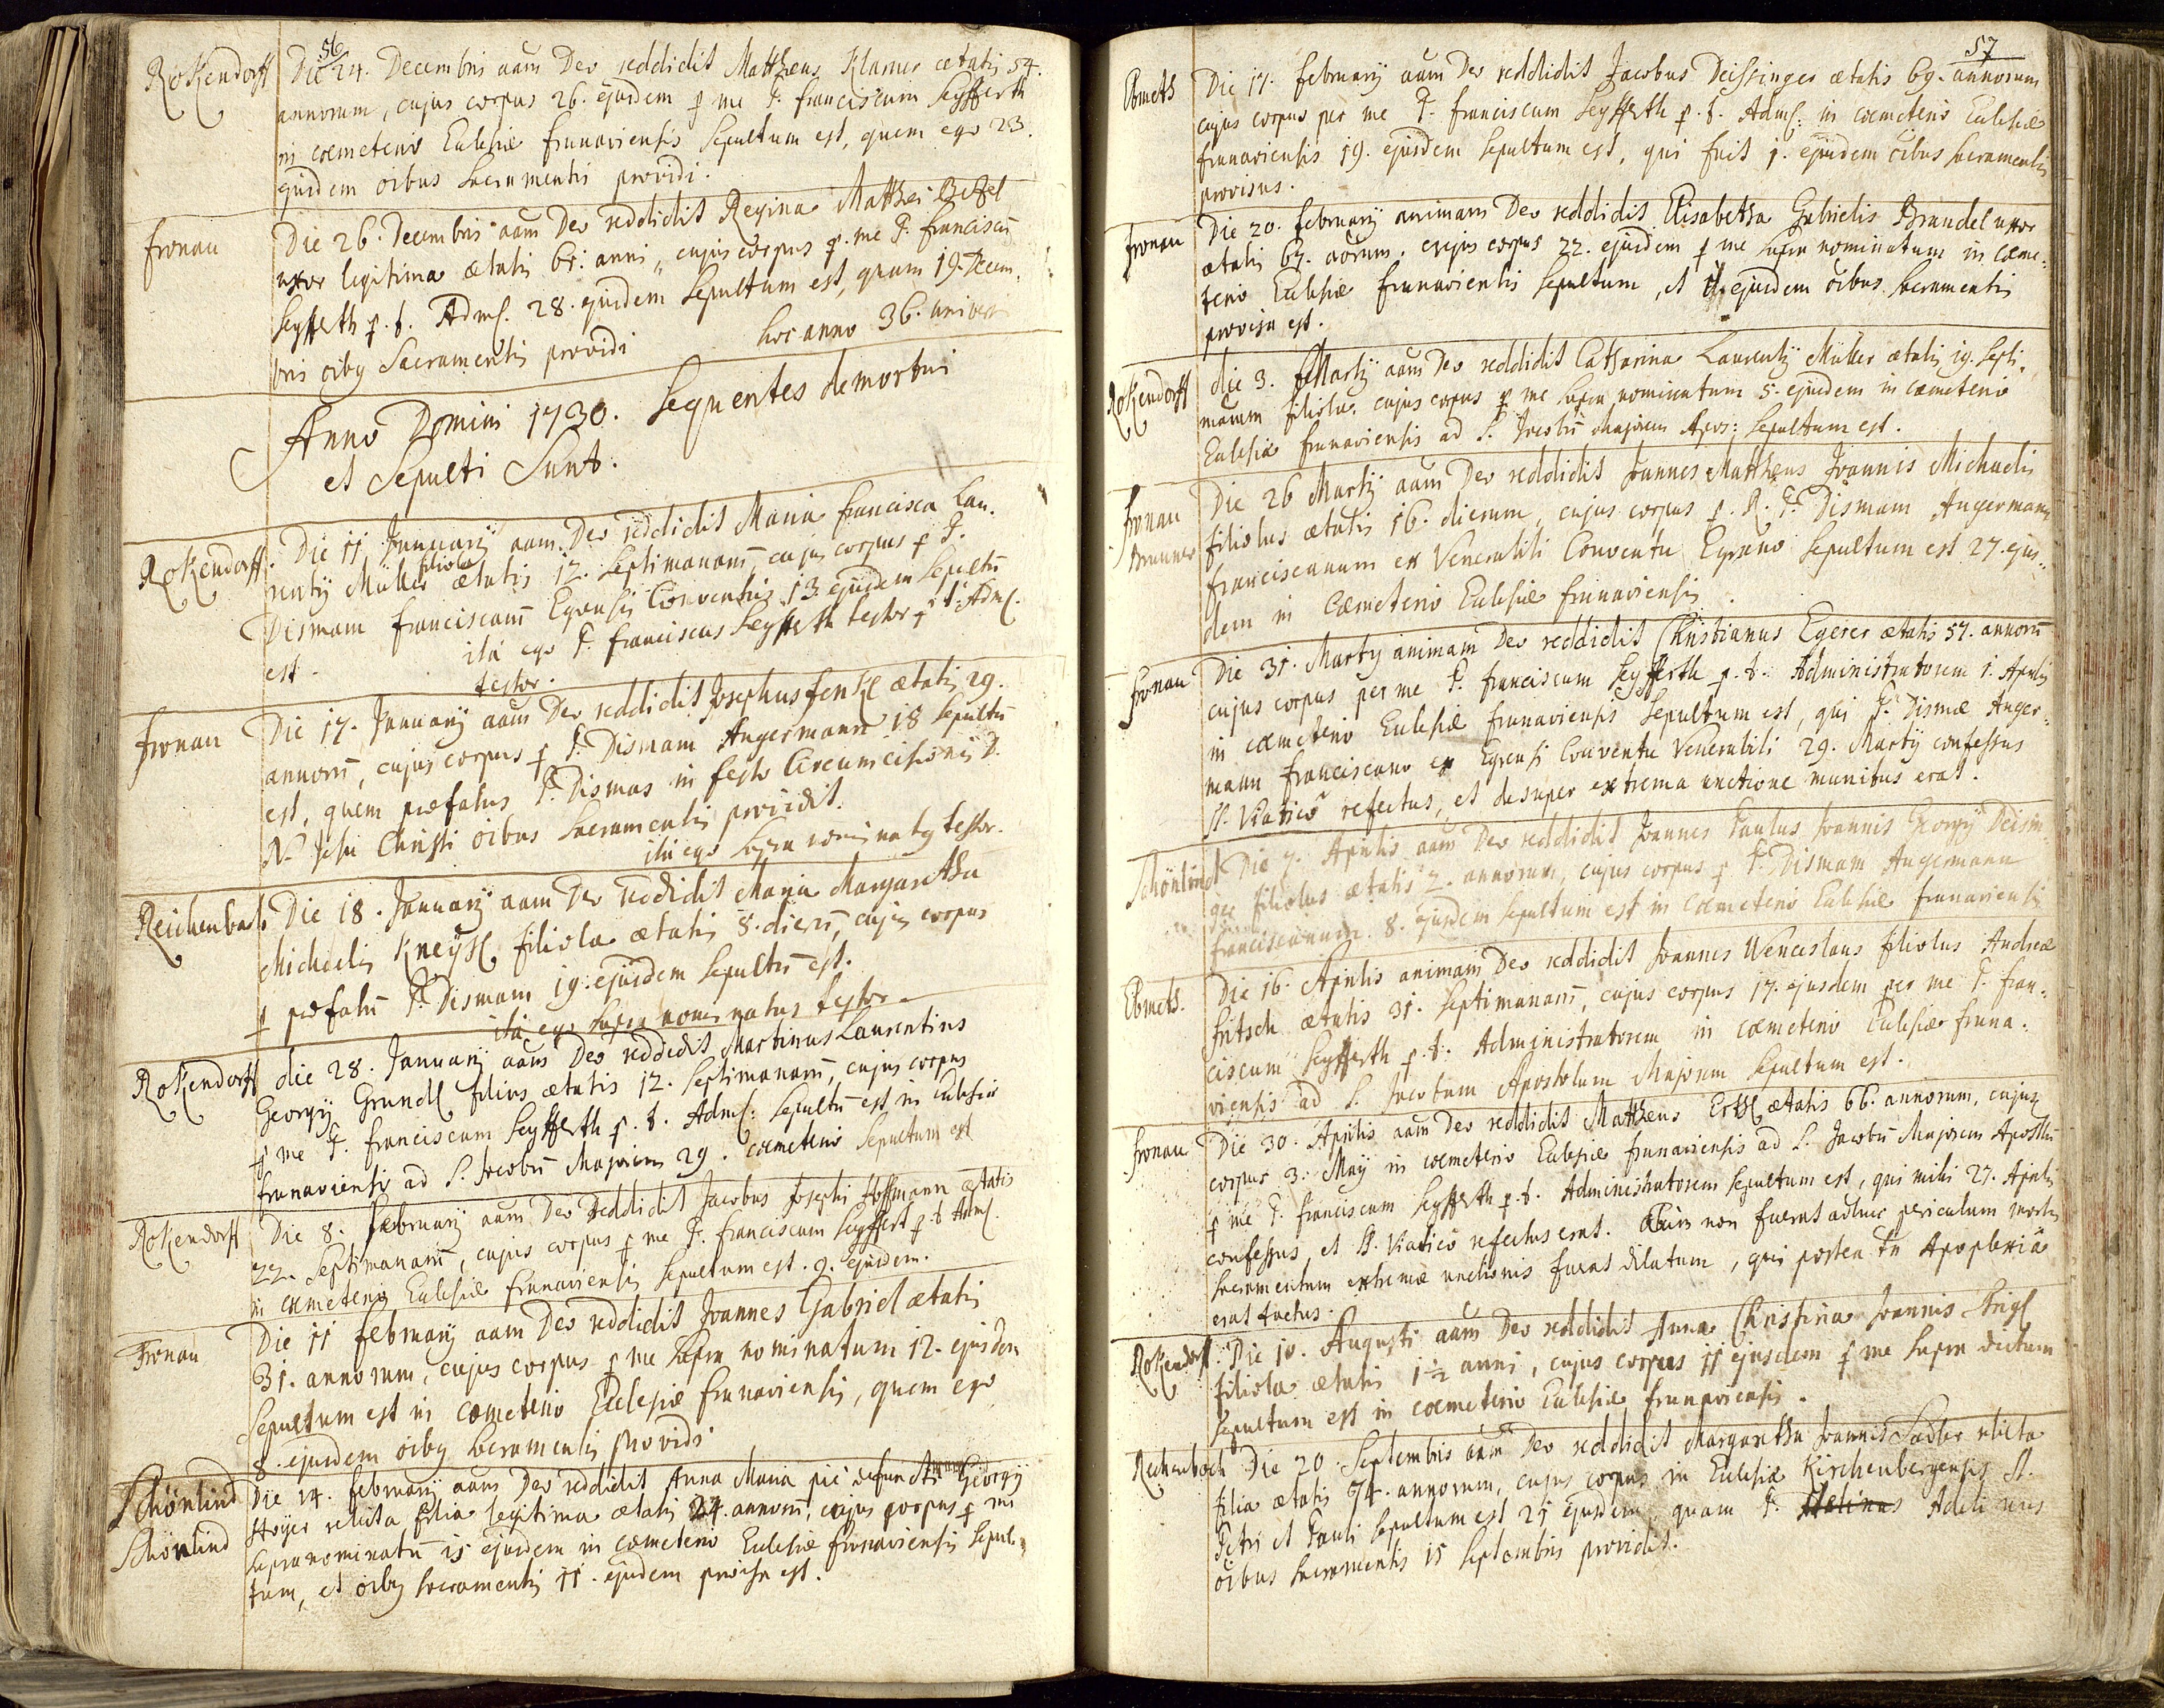 56
Rokendorff Die 24. Decembris aam Deo reddidit Matthæus Klarner ætatis 54.
annorum, cujus corpus 26. ejusdem p me P. Franciscum Seyfferth
in cœmeterio Eclesiæ frunaviensis Sepultum est, quem ego 23.
ejusdem oibus Sacramentis providi.
fronau Die 26. Decembris aam Deo reddidit Regina Matthæi
uxor legitima ætatis 61. anni, cujus corpus p. me P. Franciscū
Seyfferth p. t. Adms. 28. ejusdem Sepultum est, quam 19. Decem
bris oibq Sacramentis providi hoc anno 36. univer
Anno Domini 1730. Sequentes demortui
et Sepulti Sunt.
Rokendorff. Die 11 Januarij aam. Deo reddidit Maria francisca Lau.
rentij Müller filiola ætatis 12. Septimanarū, cujus corpus p P.
Dismam franciscanū Egrensis Conventus 13. ejusdem Sepultū
est. ità ego P. franciscus Seyfferth testor p. t. Adms.
testor.
fronau Die 17. Januarij aam Deo reddidit Josephus fenkl ætatis 29.
annorū, cujus corpus p P. Dismam Angermann 18 Sepultū
est, quem præfatus P. Dismas in festo Circumcisionis D.
N. Jesu Christi oibus Sacramentis providit.
ità ego supra nominatq testor.
Reichenbach Die 18. Januarij aam Deo reddidit Maria Margaretha
Michaelis Kneyßl filiola ætatis 8. dierū, cujus corpus
p præfatū P. Dismam 19. ejusdem Sepultū est.
ità ego supra nominatus testor.
Rokendorff die 28. Januarij aam Deo reddidit Martinus Laurentius
Georgij Grundl filius ætatis 12. Septimanarū, cujus corpus
p me P. Franciscum Seyfferth p. t. Adms: Sepultū est in Eclesia
frunaviensis ad S. Jacobū Majorem 29. cœmeterio Sepultum est
Rokendorff Die 8. Februarij aam Deo reddidit Jacobus Josephi Hoffmann ætatis
22. Septimanarū, cujus corpus p me P. Franciscum Seyffert p. t Adms.
in cœmeterio Eclesiæ frunaviensis Sepultum est. 9. Ejusdem.
Fronau Die 11 februarij aam Deo reddidit Joannes Gabriel ætatis
31. annorum, cujus corpus p me supra nominatum 12. ejusdem
Sepultum est in cœmeterio Eclesiæ frunaviensis, quem ego
8. ejusdem oibq Sacramentis providi.
Schönlind Die 14. februarij aam Deo reddidit Anna Maria pie defuncti Georgij
Schönlind Hoyer relicta filia legitima ætatis 24. annorū, cujus corpus p me
supra nominatū 15 ejusdem in cœmeterio Eclesiæ frunaviensis Sepul-
tum, et oibq Sacramentis 11. ejusdem provisa est.
57
Ebmeth Die 17. februarij aam Deo reddidit Jacobus Deissinger ætatis 69. annorum
cujus corpus per me P. franciscum Seyfferth p. t. Adms: in cœmeterio Eclesiæ
frunaviensis 19. ejusdem Sepultum est, qui fuit 1. ejusdem oibus Sacramentis
provisus.
fronau Die 20. februarij animam Deo reddidit Elisabetha Gabrielis Brandel uxor
ætatis 67. aorum. cujus corpus 22. ejusdem p me supra nominatum in cœme-
terio Eclesiæ frunaviensis Sepultum, et ejusdem oibus Sacramentis
provisa est.
Rokendorff die 3. Martij aam Deo reddidit Catharina Laurentij Müller ætatis 19. Septi-
manarum filiola. cujus corpus p me supra nominatum 5. ejusdem in cœmeterio
Eclesiæ frunaviensis ad S. Jacobū Majorem Apos: Sepultum est.
fronau Die 26 Martij aam Deo reddidit Joannes Matthæus Joannis Michaelis
Brunner filiolus ætatis 16. dierum, cujus corpus p. R. P. Dismam Angermann
franciscanum ex Venerabili Conventu Egrano Sepultum est 27. ejus-
dem in Cœmeterio Eclesiæ frunaviensis.
fronau Die 31. Martij animam Deo reddidit Christianus Egerer ætatis 57. annorū
cujus corpus per me P. franciscum Seyfferth p. t. Administratorem 1. Aprilis
in cœmeterio Eclesiæ frunaviensis Sepultum est, qui P. Dismæ Anger-
mann franciscano ex Egrensi Conventu Venerabili 29. Martij confessus
SS. Viatico refectus, et desuper extrema unctione munitus erat.
Schönlind Die 7. Aprilis aam Deo reddidit Joannes Paulus Joannis Georgij Deisin-
ger filiolus ætatis 2. annorum, cujus corpus p P. Dismam Angermann
franciscanum 8. Ejusdem Sepultum est in Cœmeterio Eclesiæ frunaviensis
Ebmeth. Die 16. Aprilis animam Deo reddidit Joannes Wenceslaus filiolus Andreæ
fritsch ætatis 31. Septimanarū, cujus corpus 17. ejusdem per me P. fran-
ciscum Seyfferth p. t. Administratorem in cœmeterio Eclesiæ fruna-
viensis ad S. Jacobum Apostolum Majorem Sepultum est.
fronau Die 30. Aprilis aam Deo reddidit Matthæus Ertl ætatis 66. annorum, cujus
corpus 3. Maij in cœmeterio Eclesiæ frunaviensis ad S. Jacobū Majorem Apostlū
p me P. Franciscum Seyfferth p. t. Administratorem Sepultum est, qui mihi 27. Aprilis
confessus, et SS. Viatico refectus erat. Cum non fuerat adhuc periculum mortis
Sacramentum extremæ unctionis fuerat dilatum, qui postea Apoplexiâ
erat tactus.
Rokendorff. Die 10. Augusti aam Deo reddidit Anna Christina Joannis
filiola ætatis 1½ anni, cujus corpus 11 ejusdem p me supra dictum
Sepultum est in cœmeterio Eclesiæ frunaviensis.
Reichenbach Die 20. Septembris aam Deo reddidit Margaretha Joannis Sadler relicta
filia ætatis 74. annorum, cujus corpus in Eclesiæ Kirchenbergensis SS.
Petri et Pauli Sepultum est 21 ejusdem, quam P. Adelinus
oibus Sacramentis 15 Septembris providit.